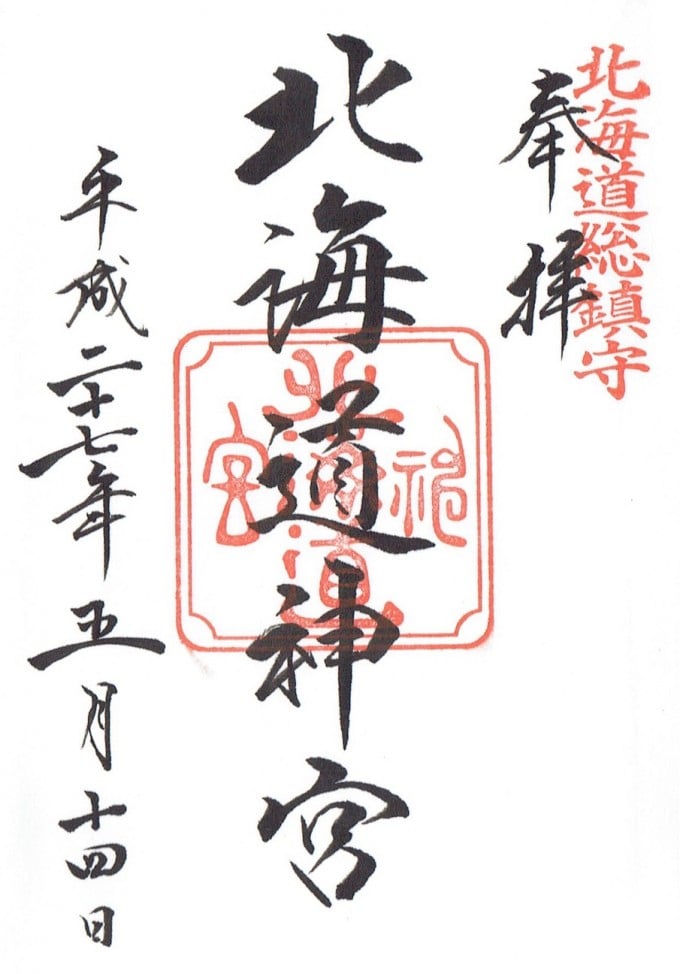 北海道総鎮守
奉拝
北海道神宮
北海道神宮
平成二十七年五月十四日